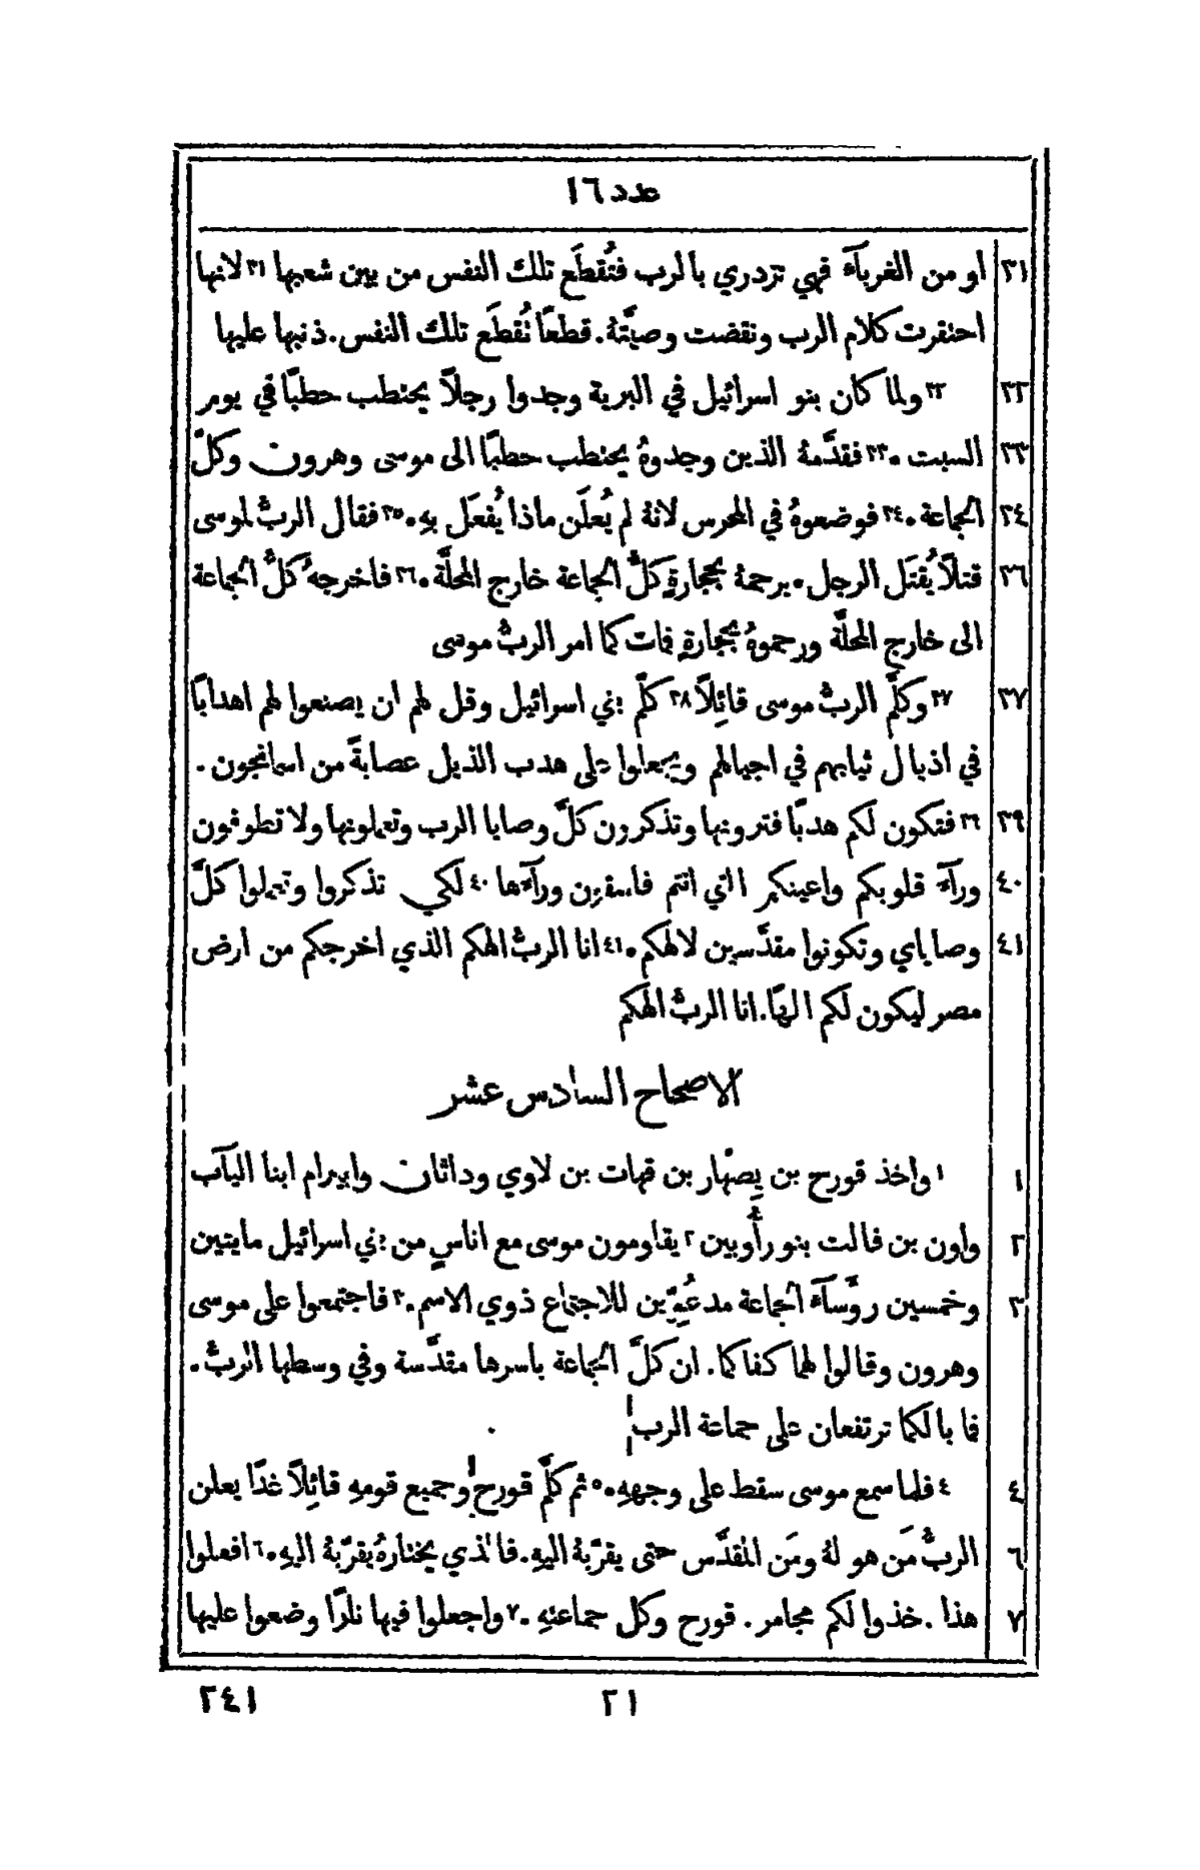 عدد ١٦
٣١ او من الغربآء فهي تزدري بالرب فتُقطَع تلك النفس من بين شعبها ٣١ لانها
احتقرت كلام الرب ونقضت وصيَّتهُ. قطعًا تُقطَع تلك النفس. ذنبها عليها
٣٢ ٣٢ ولما كان بنو اسرائيل في البرية وجدوا رجلاً يحتطب حطبًا في يوم
٣٣ السبت ٠ ٣٣ فقدَّمهُ الذين وجدوهُ يحتطب حطبًا الى موسى وهرون وكلّ
٣٤ الجماعة ٠ ٣٤ فوضعوهُ في المحرس لانهُ لم يُعلَن ماذا يُفعَل بهِ ٠ ٣٥ فقال الربُّ لموسى
٣٦ قتلاً يُقتَل الرجل ٠ يرجمهُ بحجارةٍ كلُّ الجماعة خارج المحلَّة ٠ ٣٦ فاخرجهُ كلُّ الجماعة
الى خارج المحلَّة ورجموهُ بحجارةٍ فمات كما امر الربُّ موسى
٣٧ ٣٧ وكلَّم الربُّ موسى قائِلاً ٣٨ كلّم بني اسرائيل وقل لهم ان يصنعوا لهم اهدابًا
في اذيال ثيابهم في اجيالهم ويجعلوا على هدب الذيل عصابةً من اسمانجون .
٣٩ ٣٩ فتكون لكم هدبًا فترونها وتذكرون كلَّ وصايا الرب وتعملونها ولا تطوفون
٤٠ ورآء قلوبكم واعينكم التي انتم فاسقون ورآءها ٤٠ لكي تذكروا وتعملوا كلَّ
٤١ وصاياي وتكونوا مقدَّسين لالهكم ٠ ٤١ انا الربُّ الهكم الذي اخرجكم من ارض
مصر ليكون لكم الهًا. انا الربُّ الهكم
الاصحاح السادس عشر
١ ١ واخذ قورح بن يِصهَار بن قهات بن لاوي وداثان وابيرام ابنا اليآب
٢ واون بن فالت بنو رأُوبين ٢ يقاومون موسى مع اناسٍ من بني اسرائيل مايتين
٣ وخمسين رؤَسآء الجماعة مدعُوِّين للاجتماع ذوي الاسم ٠ ٣ فاجتمعوا على موسى
وهرون وقالوا لهما كفاكما. ان كلَّ الجماعة باسرها مقدَّسة وفي وسطها الربُّ.
فما بالكما ترتفعان على جماعة الرب
٤ ٤ فلما سمع موسى سقط على وجههِ ٠ ٥ ثم كلَّم قورح وجميع قومهِ قائِلاً غدًا يعلن
٦ الربُّ مَن هو لهُ ومَن المُقدَّس حتى يقرّبهُ اليهِ. فالذي يختارهُ يقرّبهُ اليهِ ٠ ٦ افعلوا
٧ هذا . خذوا لكم مجامر . قورح وكل جماعتهِ ٠ ٧ واجعلوا فيها نارًا وضعوا عليها
٢١
٢٤١